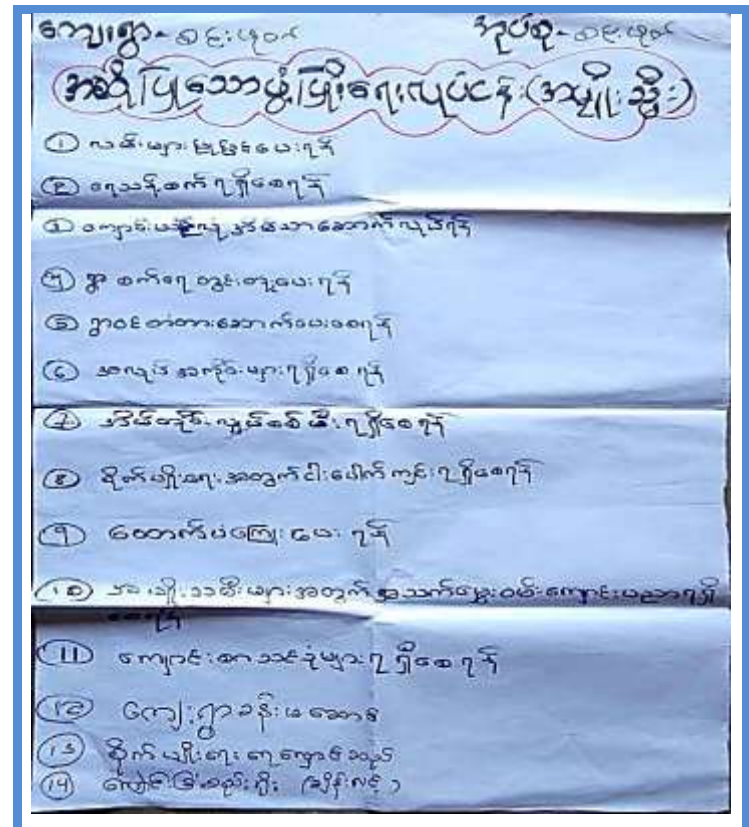 ကျေးရွာ- အုပ်စု-
အဆိုပြုသောဖွံ့ဖြိုးရေးလုပ်ငန်း(အမျိုးသ္မီး)
① လမ်းများပြုပြင်ပေးရန်
② ရေသန့်စက်ရရှိစေရန်
③ ကျောင်း ဆောက်လုပ်ရန်
④ ရွာ စက်ရေတွင်းတူးပေးရန်
⑤ ရွာဝင်တံတားဆောက်ပေးစေရန်
⑥ အလုပ်အကိုင်များရရှိစေရန်
⑦ အိမ်တိုင်းလျှပ်စစ်မီးရရှိစေရန်
⑧ စိုက်ပျိုးရေးအတွက် ရရှိစေရန်
⑨ ထောက်ပံ့ကြေးပေးရန်
⑩ အမျိုးသမီးများအတွက်အသက်မွေးဝမ်းကျောင်းပညာရရှိ
စေရန်
⑪ ကျောင်း ရရှိစေရန်
⑫ ကျေးရွာခန်းမဆောင်
⑬ စိုက်ပျိုးရေး
⑭